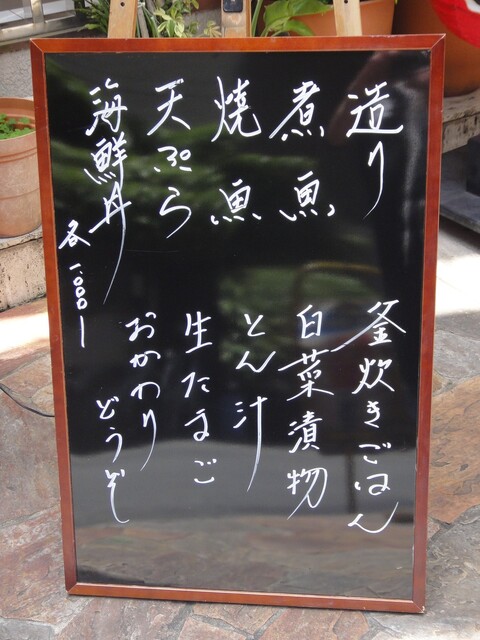 造り
煮魚
焼魚
天ぷら
海鮮丼
各1.000ー
釜炊きごはん
白菜漬物
とん汁
生たまご
おかわり
どうぞ